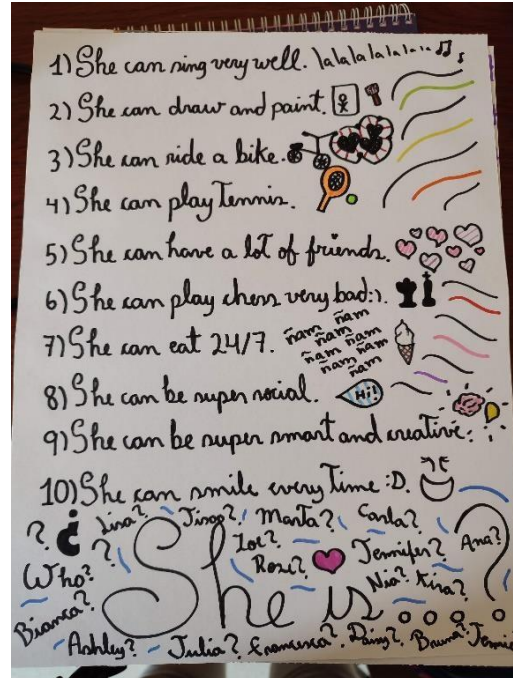 1) She can sing very well. lalalalalala...
2) She can draw and paint.
3) She can ride a bike.
4) She can play Tennis.
5) She can have a lot of friends.
6) She can play chess very bad:).
7) She can eat 24/7. ñam ñam
ñam ñam
ñam ñam
ñam ñam
ñam
8) She can be super social. Hi!
9) She can be super smart and creative.
10) She can smile every time :D.
? ¿ ? Lisa? Jisoo? Marta? Carla?
Who? Zoe? Rose? Jennifer? Ana?
Bianca? She is Nia? Kira? ?
Ashley? Julia? Francesca? Daisy? Bruna? Jennie